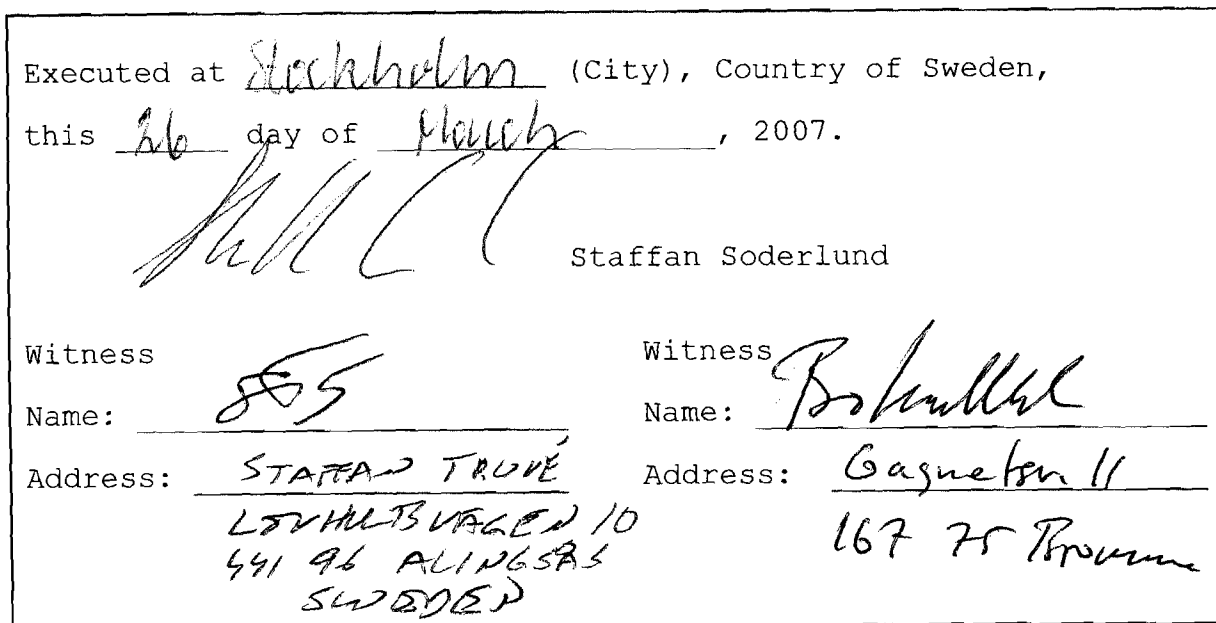 Executed at Stockholm (City), Country of Sweden,
this 26 day of March, 2007.
Staffan Soderlund
Witness
Name:
Address: STAFFAN TRUVÉ
10
441 96 ALINGSÅS
SWEDEN
Witness
Name:
Address: 11
167 75 Bromma